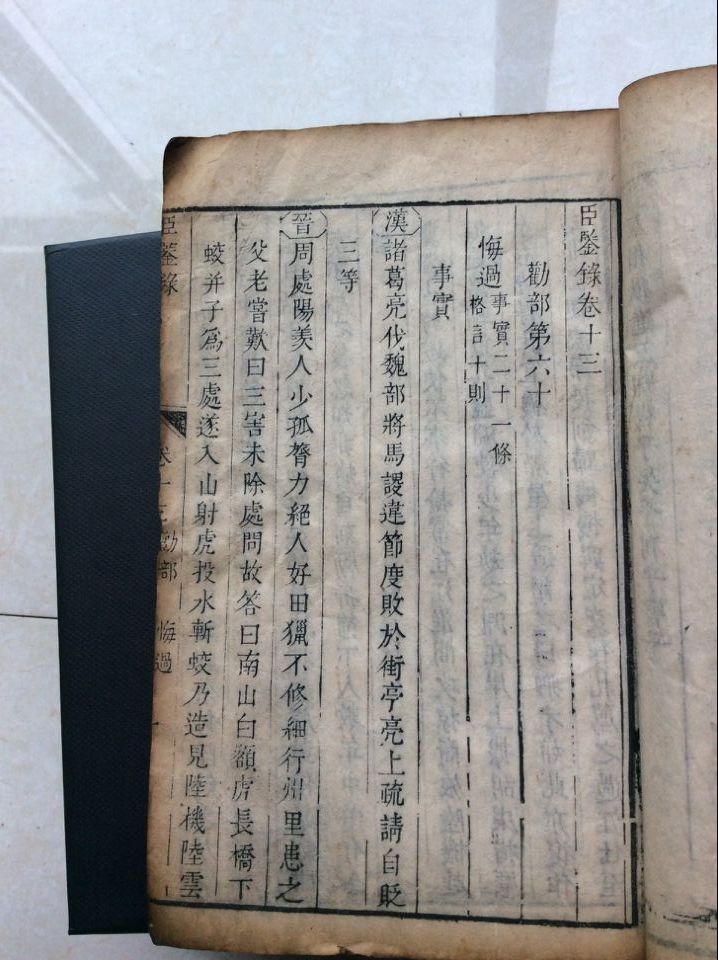 臣鑒錄卷十三
勸部第六十
悔過 事實二十一條
格言十則
事實
漢諸葛亮伐魏部將馬謖違節度敗於街亭亮上疏請自貶
三等
晉周處陽羨人少孤膂力絕人好田獵不修細行州里患之
父老嘗歎曰三害未除處問故答曰南山白額虎長橋下
蛟并子爲三處遂入山射虎投水斬蛟乃造見陸機陸雲
臣鑒錄 卷十三 勸部 悔過 一